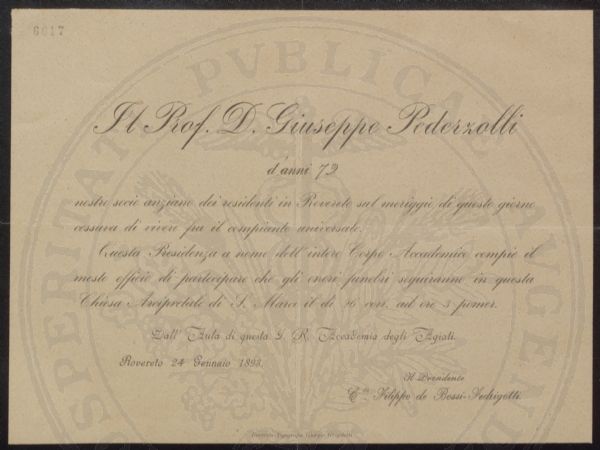 6617
PVBLICAE
PROSPERITATI
AVGENDAE
Il Prof. D. Giuseppe Pederzolli
d'anni 72
nostro socio anziano dei residenti in Rovereto sul meriggio di questo giorno
cessava di vivere fra il compianto universale.
Questa Presidenza a nome dell'intero Corpo Accademico compie il
mesto officio di partecipare che gli onori funebri seguiranno in questa
Chiesa Arcipretale di S. Marco il dì 26 corr. ad ore 3 pomer.
Dall' Aula di questa I. R. Accademia degli Agiati.
Rovereto 24 Gennaio 1893.
Il Presidente
Filippo de Bossi-Fedrigotti
Rovereto, Tipografia Giorgio Grigoletti